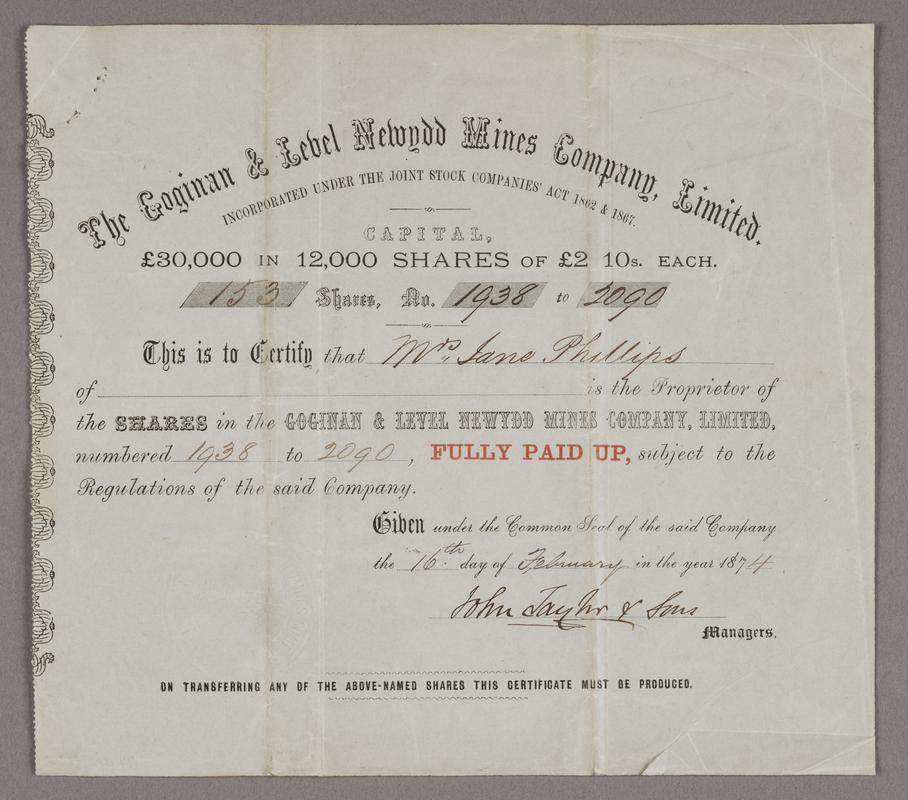 The Goginan & Level Newydd Mines Company, Limited.
INCORPORATED UNDER THE JOINT STOCK COMPANIES' ACT 1862 & 1867.
CAPITAL,
£30,000 IN 12,000 SHARES OF £2 10s. EACH.
153 Shares, No. 1938 to 2090
This is to Certify that Mrs. Jane Phillips
of is the Proprietor of
the SHARES in the GOGINAN & LEVEL NEWYDD MINES COMPANY, LIMITED,
numbered 1938 to 2090, FULLY PAID UP, subject to the
Regulations of the said Company.
Given under the Common Seal of the said Company
the 16th day of February in the year 1874.
John Taylor & Sons
Managers.
ON TRANSFERRING ANY OF THE ABOVE-NAMED SHARES THIS CERTIFICATE MUST BE PRODUCED.